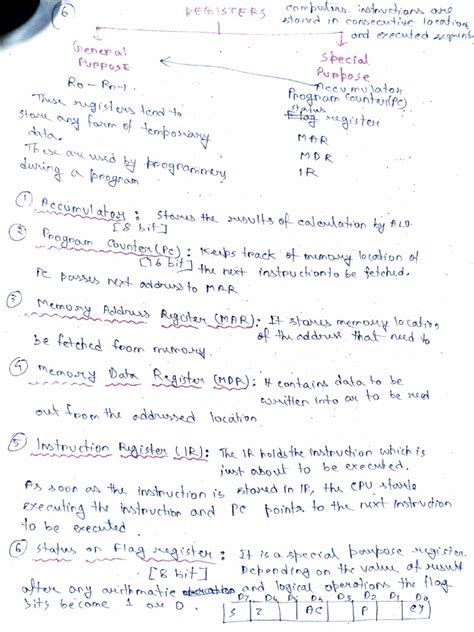 6
REGISTERS
computers instructions are
stored in consecutive location
and executed sequen
General
Purpose
Special
Purpose
R0 - Rn-1.
These registers tend to
store any form of temporary
data.
These are used by programmers
during a program
Accumulator
Program Counter (PC)
status
Flag register
MAR
MDR
IR
1 Accumulator : Stores the results of calculation by ALU.
[8 bit]
2 Program Counter (PC) : Keeps track of memory location of
[16 bit] the next instruction to be fetched.
PC passes next address to MAR
3 Memory Address Register (MAR): It stores memory location
of the address that need to
be fetched from memory.
4 Memory Data Register (MDR): It contains data to be
written into or to be read
out from the addressed location.
5 Instruction Register (IR): The IR holds the instruction which is
just about to be executed.
As soon as the instruction is stored in IR, the CPU starts
executing the instruction and PC points to the next instruction
to be executed.
6 Status or Flag register : It is a special purpose register.
[8 bit] Depending on the value of result
after any arithmetic and logical operations the flag
bits become 1 or 0.
D7 D6 D5 D4 D3 D2 D1 D0
S Z AC P CY